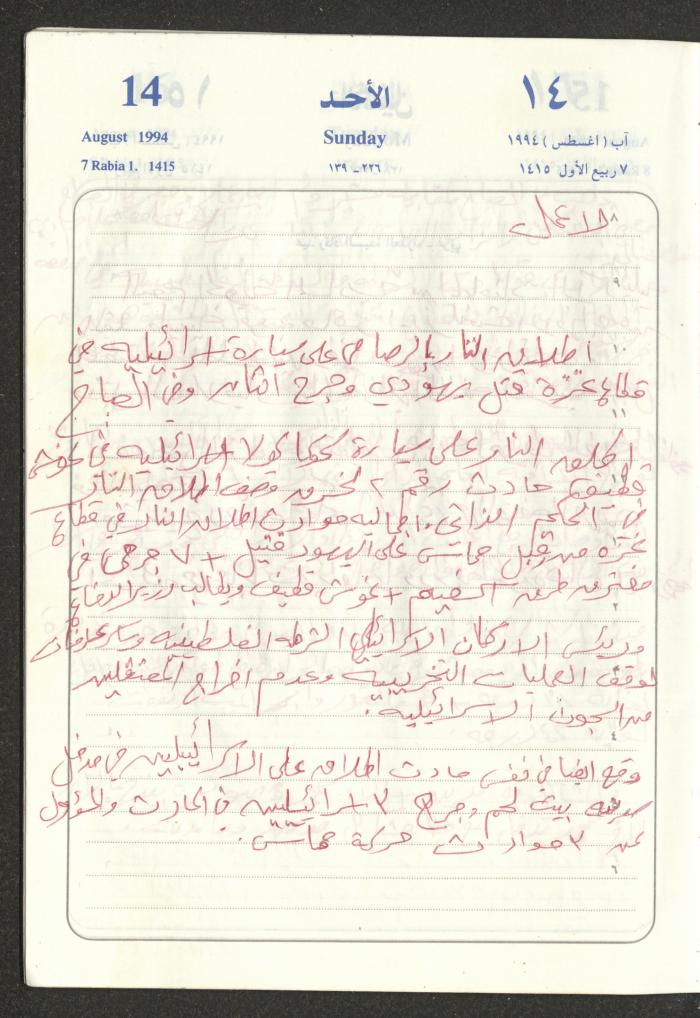 14 الأحد ١٤
August 1994 Sunday آب ( اغسطس ) ١٩٩٤
7 Rabia 1. 1415 ١٣٩ ـ ٢٢٦ ٧ ربيع الأول ١٤١٥
٨ لا عمل
٩
١٠ اطلاق النار بالرصاص على سيارة اسرائيلية في
قطاع غزة قتل يهودي وجرح اثنان وفي الصباح
١١
اطلاق النار على سيارة اسرائيلية في غوش
قطيف حادث رقم ٢ اطلاق النار
في الحكم الذاتي. حوادث اطلاق النار في قطاع
غزة من قبل حماس على اليهود قتيل + ٧ جرحى في
مفترق طرق + غوش قطيف ويطالب وزير الدفاع
٢
ورئيس الاركان الاسرائيلي الشرطة الفلسطينية وياسر عرفات
لوقف العمليات التخريبية وعدم افراج المعتقلين
من السجون الاسرائيلية.
٤
وقع ايضا في نفس حادث اطلاق على الاسرائيليين في مدخل
مدينة بيت لحم وجراح ٣ اسرائيليين في الحادث والمسؤول
عن ٣ حوادث حركة حماس.
٦